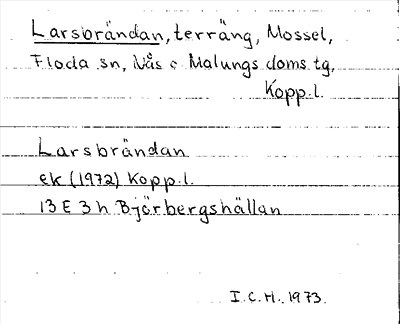 Larsbrändan, terräng, Mossel,
Floda sn, Nås o Malungs doms.tg,
Kopp.l.
Larsbrändan
ek (1972) Kopp.l.
13 E 3 h Björbergshällan
I.C.H. 1973.